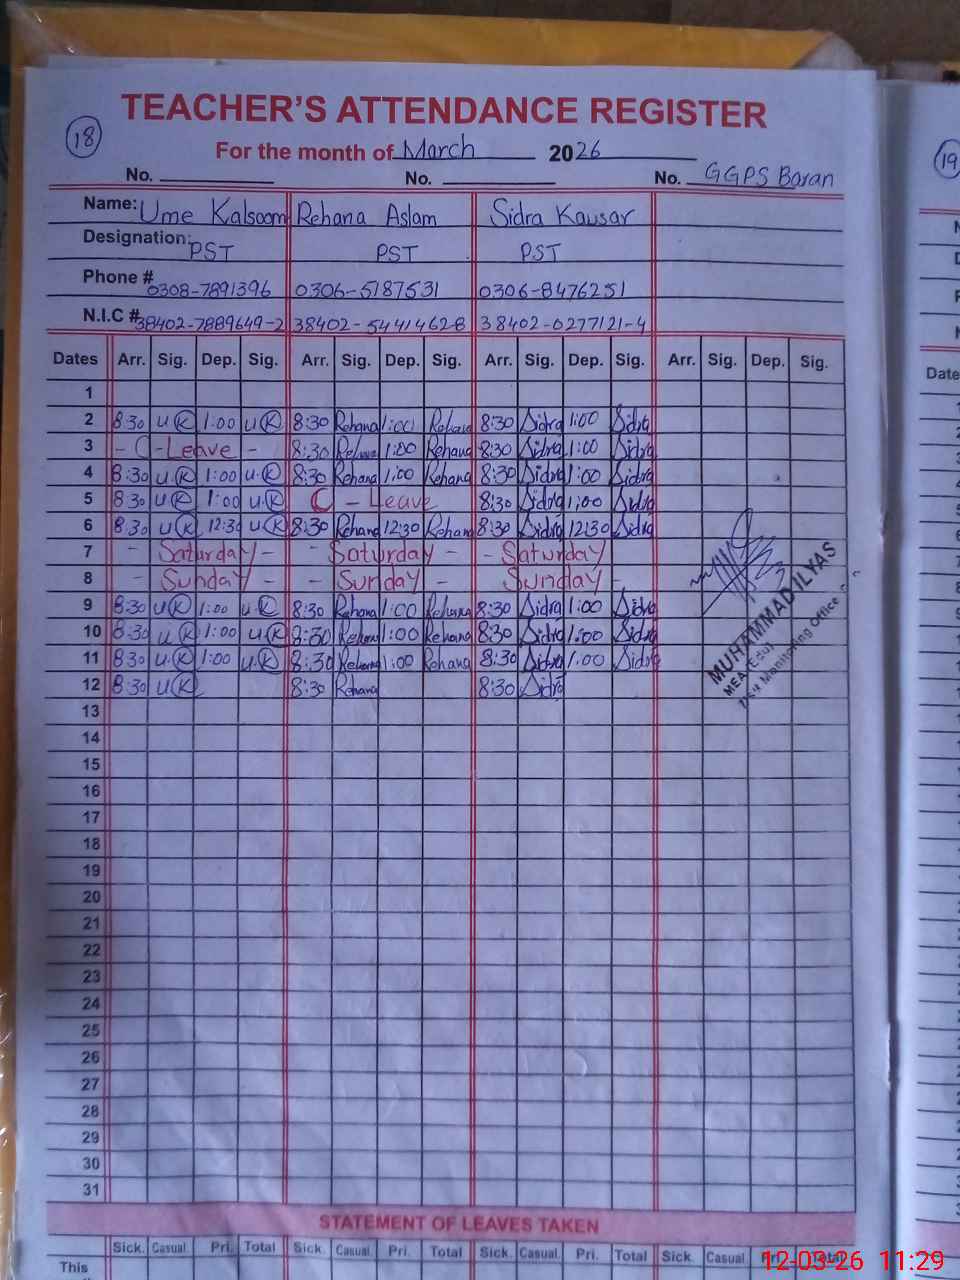 TEACHER'S ATTENDANCE REGISTER
18
For the month of March 2026
19
No. No. No. GGPS Boran
Name: Ume Kalsoom Rehana Aslam Sidra Kausar
Designation: PST PST PST
Phone # 0308-7891396 0306-5187531 0306-8476251
N.I.C # 38402-7889649-2 38402-5441462-8 38402-0277121-4
Dates Arr. Sig. Dep. Sig. Arr. Sig. Dep. Sig. Arr. Sig. Dep. Sig. Arr. Sig. Dep. Sig.
Date
1
2 8:30 UK 1:00 UK 8:30 Rehana 1:00 Rehana 8:30 Sidra 1:00 Sidra
3 - C-Leave - 8:30 Rehana 1:00 Rehana 8:30 Sidra 1:00 Sidra
4 8:30 U.K 1:00 U.K 8:30 Rehana 1:00 Rehana 8:30 Sidra 1:00 Sidra
5 8:30 UK 1:00 U.K C - Leave 8:30 Sidra 1:00 Sidra
6 8:30 UK 12:30 UK 8:30 Rehana 12:30 Rehana 8:30 Sidra 12:30 Sidra
7 - Saturday - - Saturday - - Saturday
8 - Sunday - - Sunday - Sunday -
9 8:30 UK 1:00 U.K 8:30 Rehana 1:00 Rehana 8:30 Sidra 1:00 Sidra
10 8:30 U.K 1:00 UK 8:30 Rehana 1:00 Rehana 8:30 Sidra 1:00 Sidra
11 8:30 U.K 1:00 U.K 8:30 Rehana 1:00 Rehana 8:30 Sidra 1:00 Sidra
12 8:30 UK 8:30 Rehana 8:30 Sidra
MUHAMMAD ILYAS
MEA (Edu)
Distt Monitoring Office
13
14
15
16
17
18
19
20
21
22
23
24
25
26
27
28
29
30
31
STATEMENT OF LEAVES TAKEN
Sick. Casual. Pri. Total Sick. Casual. Pri. Total Sick. Casual. Pri. Total Sick. Casual Pri. Total
This
12-03-26 11:29